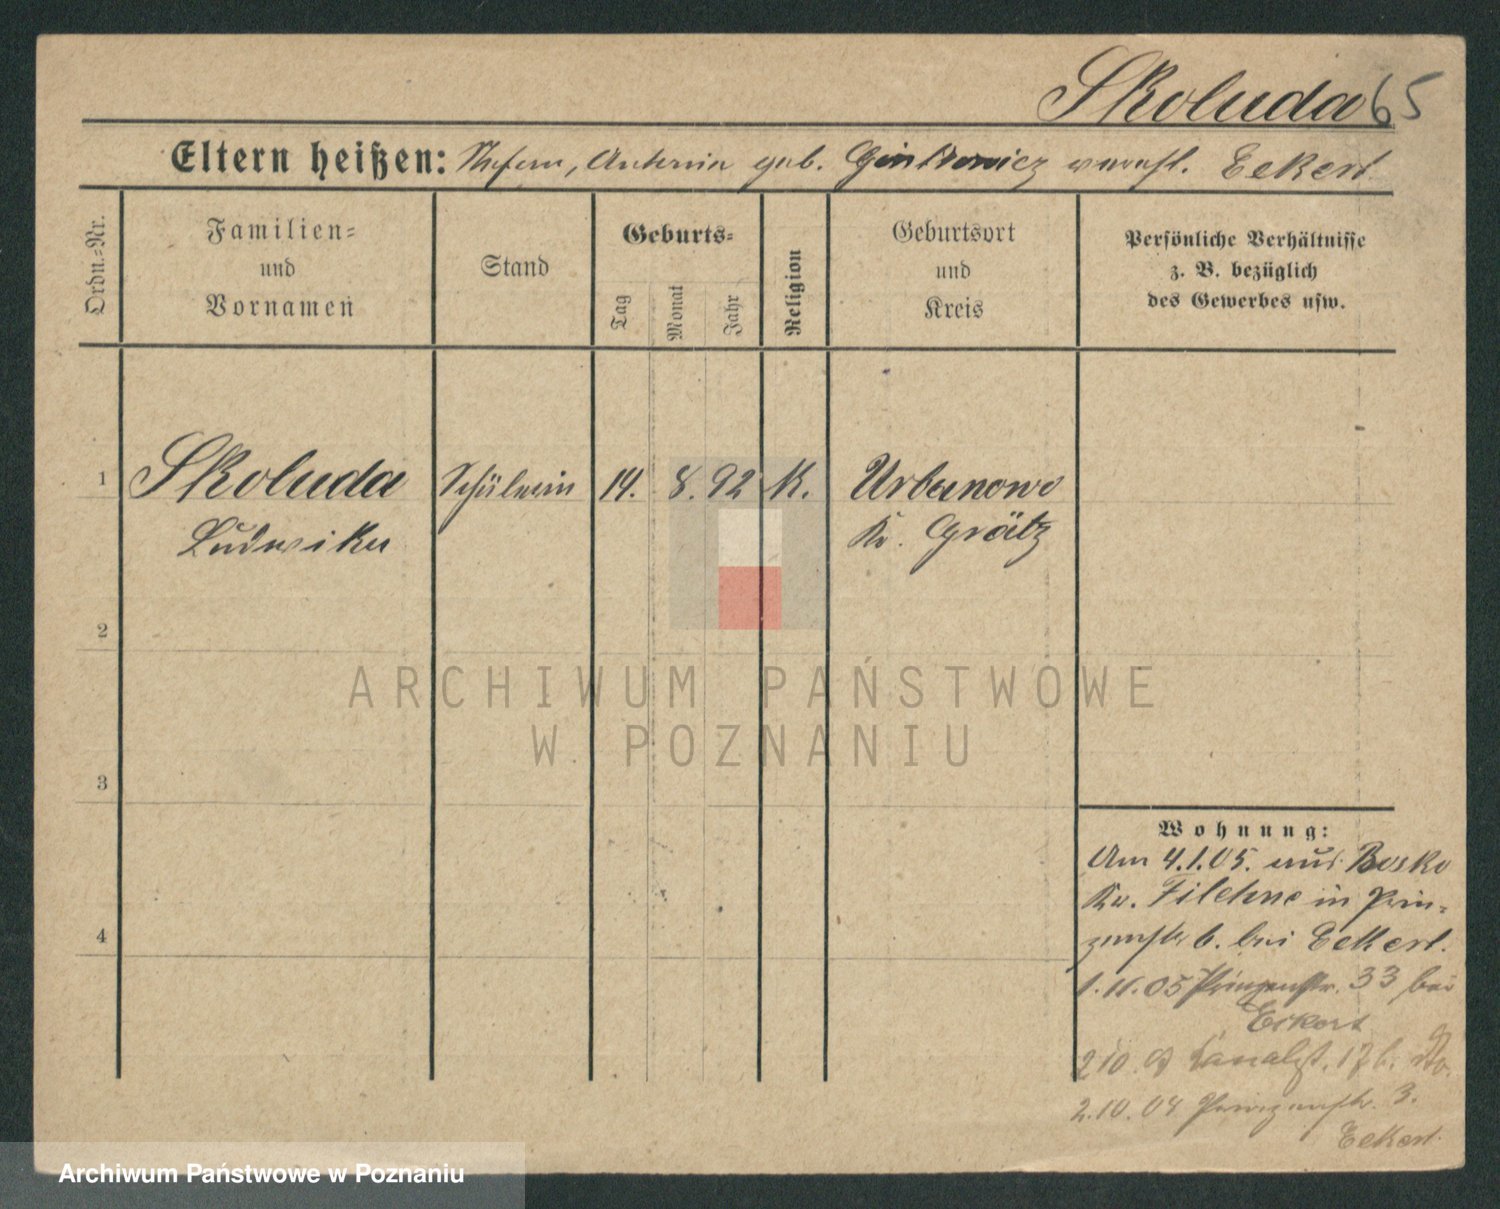 Skoluda 65
Eltern heißen: Stefan, Antonie geb. verehl. Eckert
Ordn.-Nr.
Familien-
und
Vornamen
Stand
Geburts-
Tag
Monat
Jahr
Religion
Geburtsort
und
Kreis
Persönliche Verhältnisse
z. B. bezüglich
des Gewerbes usw.
1 Skoluda Schülerin 14. 8. 92 K. Urbanowo
Ludwika Kr. Grätz
2
ARCHIWUM PAŃSTWOWE
W POZNANIU
3
4
Wohnung:
Am 4.1.05. aus Rosko
Kr. Filehne in Prin-
zenstr 6. bei Eckert.
1.11.05 Prinzenstr. 33 bei
Eckert
2 10. Kanalst. 17 b. dto.
2.10.04 Prinzenstr. 3.
Eckert
Archiwum Państwowe w Poznaniu